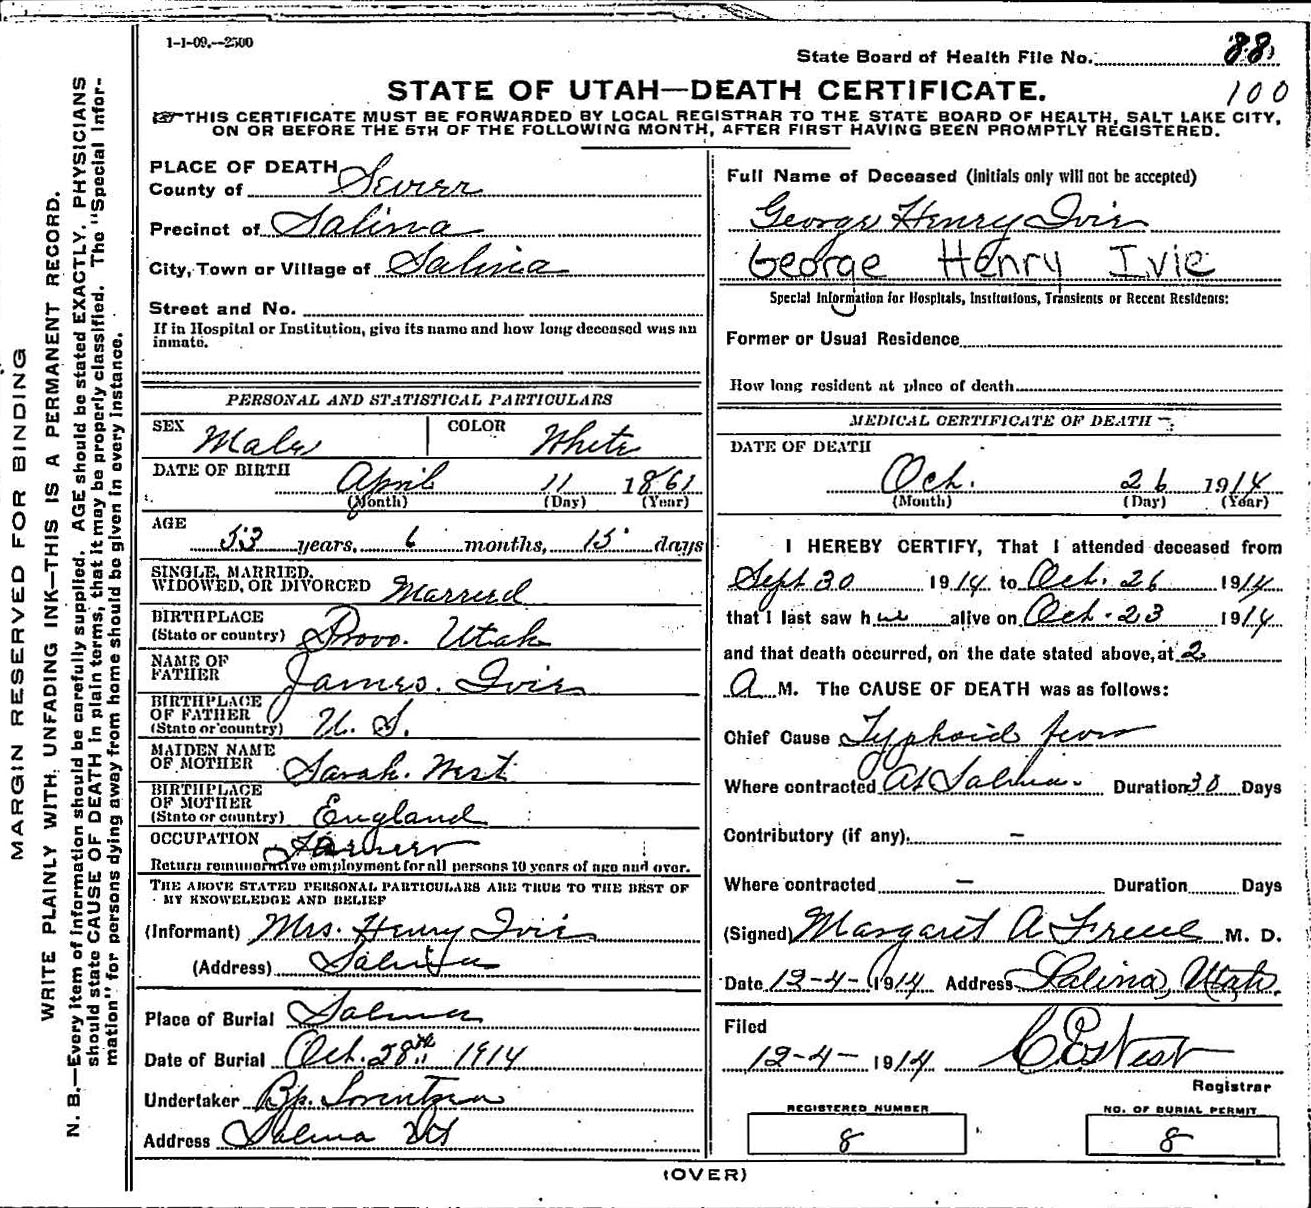 1-1-09.—2500
State Board of Health File No. 88
100
STATE OF UTAH—DEATH CERTIFICATE.
☞THIS CERTIFICATE MUST BE FORWARDED BY LOCAL REGISTRAR TO THE STATE BOARD OF HEALTH, SALT LAKE CITY,
ON OR BEFORE THE 5TH OF THE FOLLOWING MONTH, AFTER FIRST HAVING BEEN PROMPTLY REGISTERED.
MARGIN RESERVED FOR BINDING
WRITE PLAINLY WITH UNFADING INK—THIS IS A PERMANENT RECORD.
N. B.—Every item of information should be carefully supplied. AGE should be stated EXACTLY. PHYSICIANS
should state CAUSE OF DEATH in plain terms, that it may be properly classified. The "Special Infor-
mation" for persons dying away from home should be given in every instance.
PLACE OF DEATH
County of Sevier
Precinct of Salina
City, Town or Village of Salina
Street and No.
If in Hospital or Institution, give its name and how long deceased was an
inmate.
PERSONAL AND STATISTICAL PARTICULARS
SEX Male COLOR White
DATE OF BIRTH
April 11 1861
(Month) (Day) (Year)
AGE
53 years, 6 months, 15 days
SINGLE, MARRIED,
WIDOWED, OR DIVORCED Married
BIRTHPLACE
(State or country) Provo. Utah
NAME OF
FATHER James. Ivie
BIRTHPLACE
OF FATHER
(State or country) U. S.
MAIDEN NAME
OF MOTHER Sarah. West
BIRTHPLACE
OF MOTHER
(State or country) England
OCCUPATION Farmer
Return remunerative employment for all persons 10 years of age and over.
THE ABOVE STATED PERSONAL PARTICULARS ARE TRUE TO THE BEST OF
MY KNOWELEDGE AND BELIEF
(Informant) Mrs. Henry Ivie
(Address) Salina
Place of Burial Salina
Date of Burial Oct. 28th 1914
Undertaker Bp. Sorentzen
Address Salina Ut
Full Name of Deceased (Initials only will not be accepted)
George Henry Ivie
George Henry Ivie
Special Information for Hospitals, Institutions, Transients or Recent Residents:
Former or Usual Residence
How long resident at place of death
MEDICAL CERTIFICATE OF DEATH
DATE OF DEATH
Oct. 26 1914
(Month) (Day) (Year)
I HEREBY CERTIFY, That I attended deceased from
Sept 30 1914 to Oct. 26 1914
that I last saw him alive on Oct. 23 1914
and that death occurred, on the date stated above, at 2
A M. The CAUSE OF DEATH was as follows:
Chief Cause Typhoid fever
Where contracted At Salina. Duration 30 Days
Contributory (if any). —
Where contracted — Duration Days
(Signed) Margaret A M. D.
Date 12-4-1914 Address Salina, Utah.
Filed
12-4-1914 C E West
Registrar
REGISTERED NUMBER
8
NO. OF BURIAL PERMIT
8
(OVER)